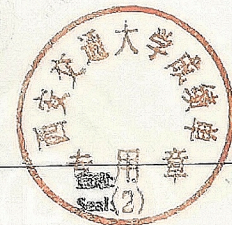 西安交通大学成绩单
专用章
Seal(2)